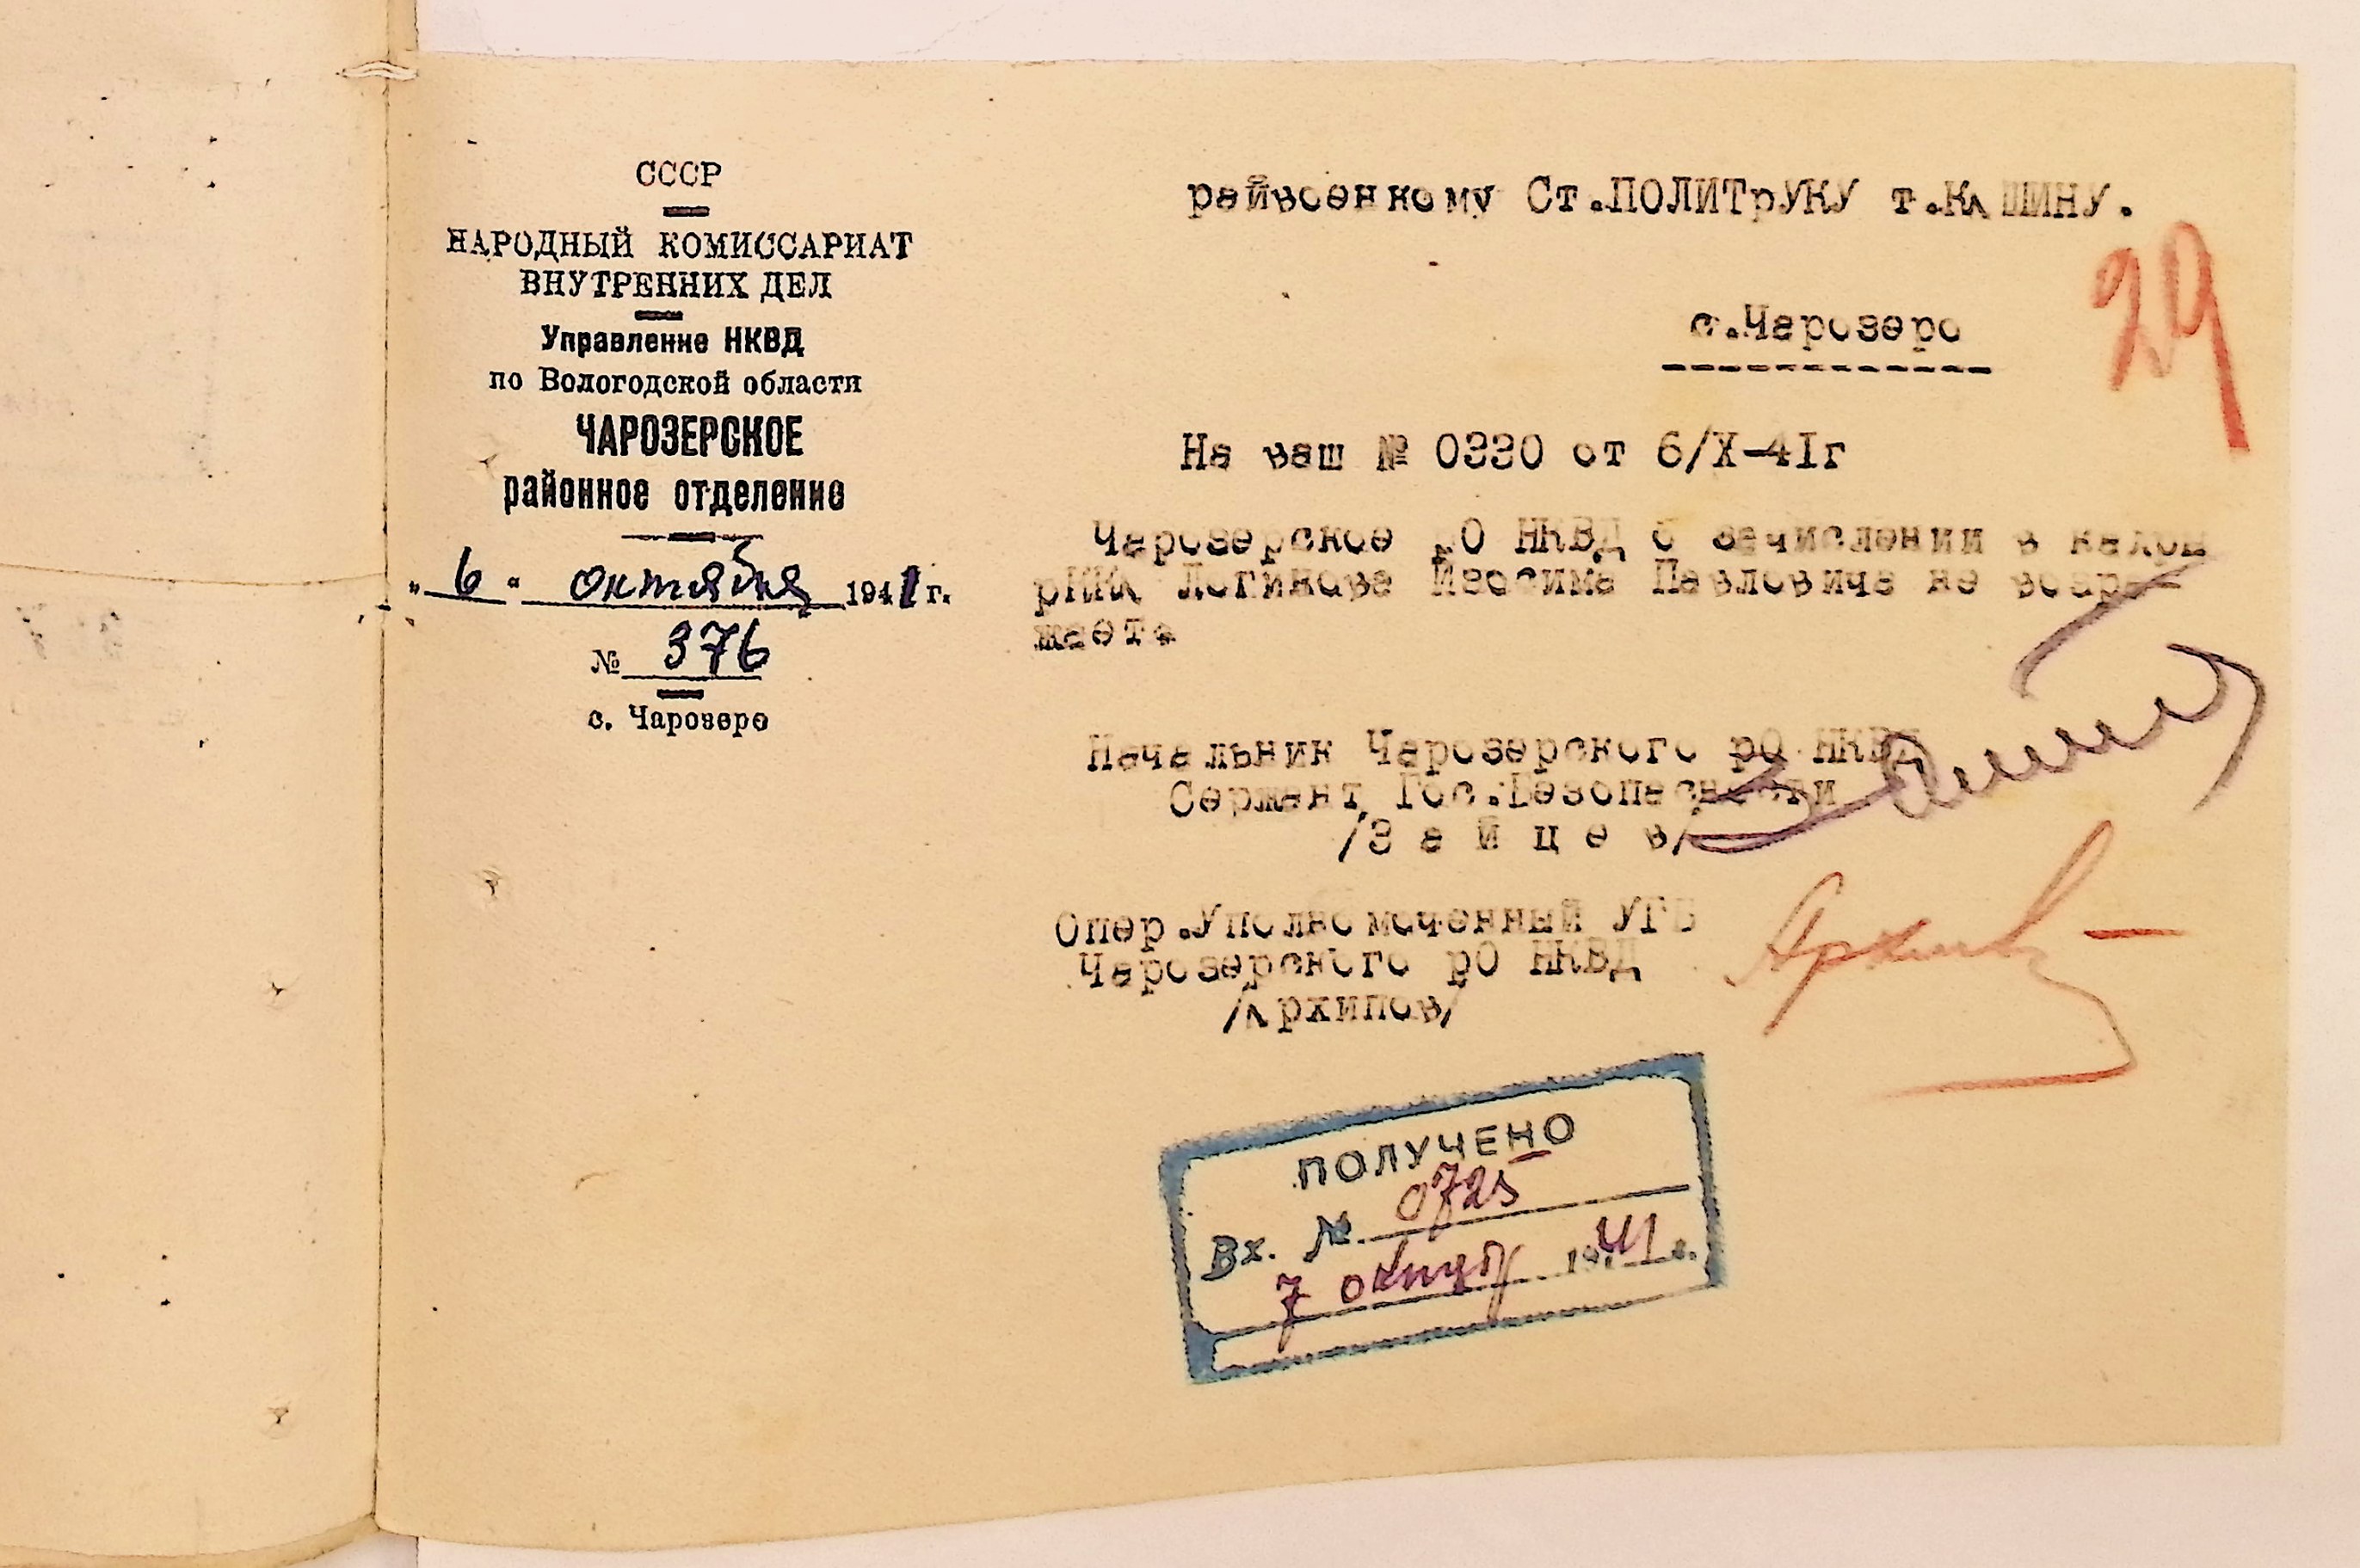 СССР
НАРОДНЫЙ КОМИССАРИАТ
ВНУТРЕННИХ ДЕЛ
Управление НКВД
по Вологодской области
ЧАРОЗЕРСКОЕ
районное отделение
„ 6 " октября 1941 г.
№ 376
с. Чарозеро
райвоенкому Ст.ПОЛИТрУКУ т.КАШИНУ.
29
с.Чарозеро
На ваш № 0330 от 6/X-41г
Чарозерское рО НКВД о зачислении в кадры
рККА Логинова Изосима Павловича не возра-
жает.
Начальник Чарозерского рО НКВД
Сержант Гос.Безопасности
/З а й ц е в/
Опер.Уполномоченный УГБ
Чарозерского рО НКВД
/Архипов/
ПОЛУЧЕНО
Вх. № 0725
7 октяб 1941 г.